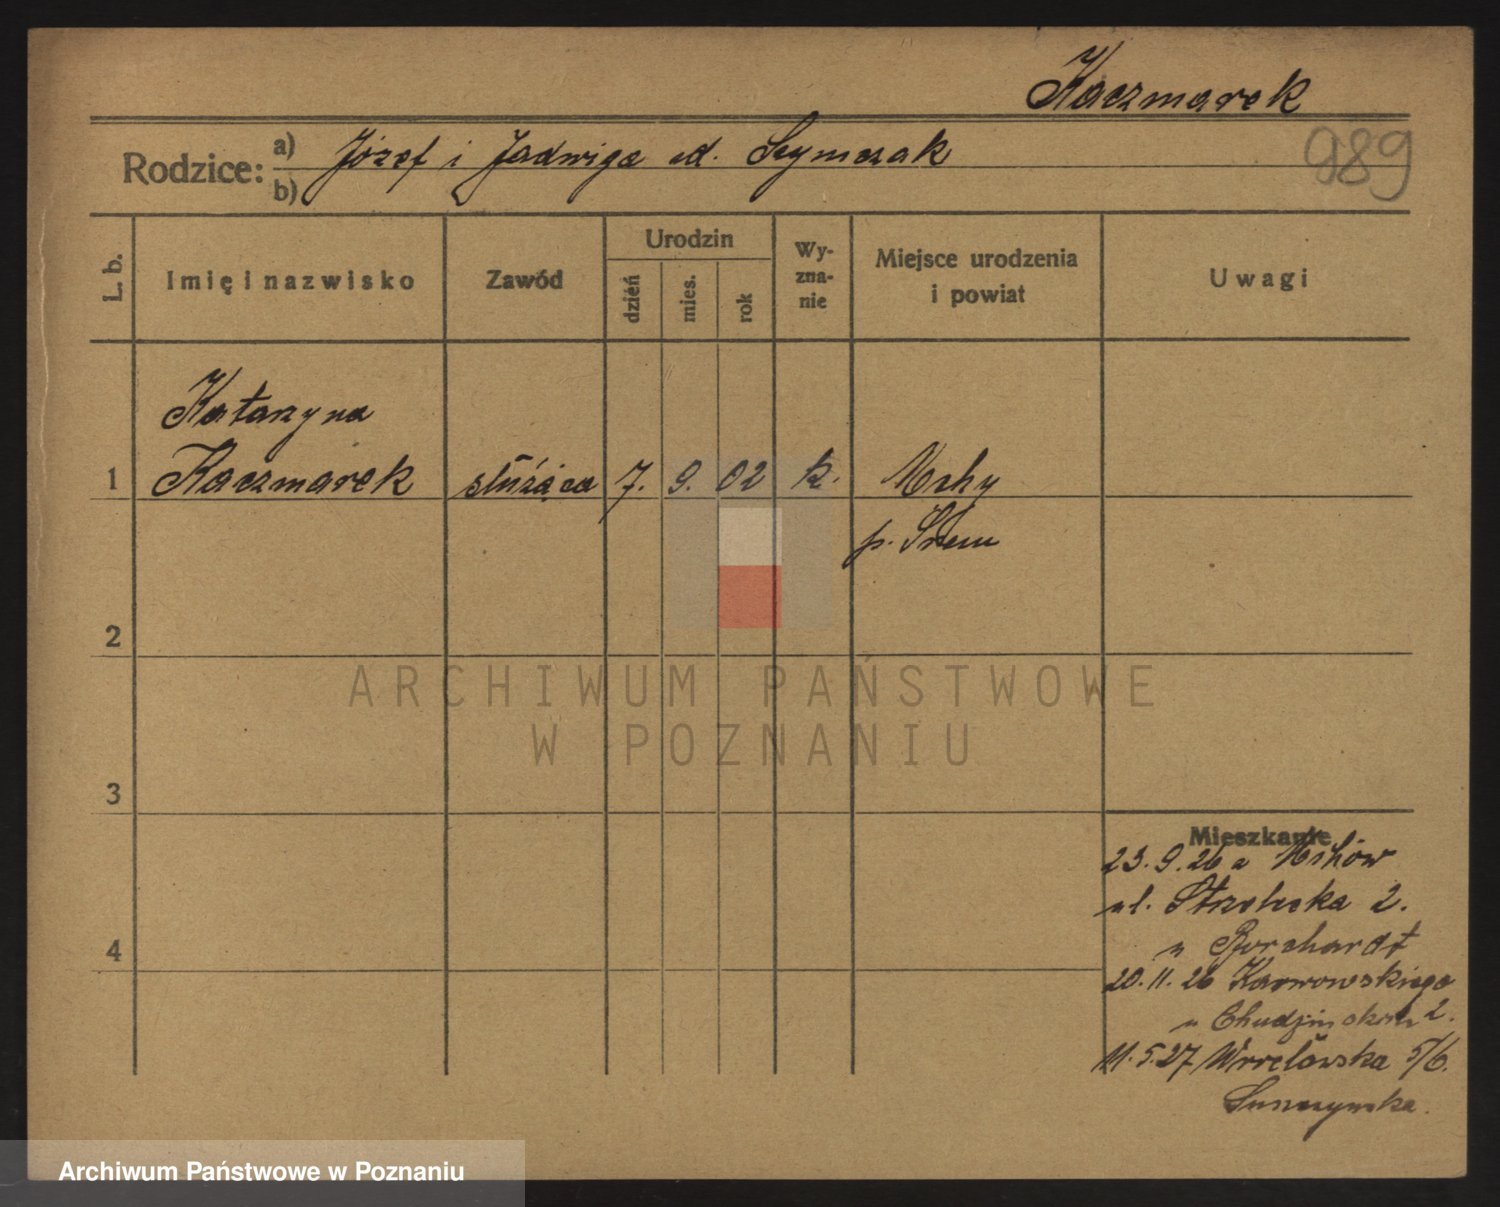 Kaczmarek
Rodzice: a) Józef i Jadwiga ud. Szymczak
b)
989
L. b.
Imię i nazwisko
Zawód
Urodzin
dzień
mies.
rok
Wy-
zna-
nie
Miejsce urodzenia
i powiat
Uwagi
Katarzyna
1 Kaczmarek służąca 7. 9. 02 k. Mchy
p. Śrem
2
ARCHIWUM PAŃSTWOWE
W POZNANIU
3
Mieszkanie
23.9.26 z Mchów
ul. Strzelecka 2.
u Borchardt
4
20.11.26 Karwowskiego
u 2.
11.5.27 5/6.
Archiwum Państwowe w Poznaniu